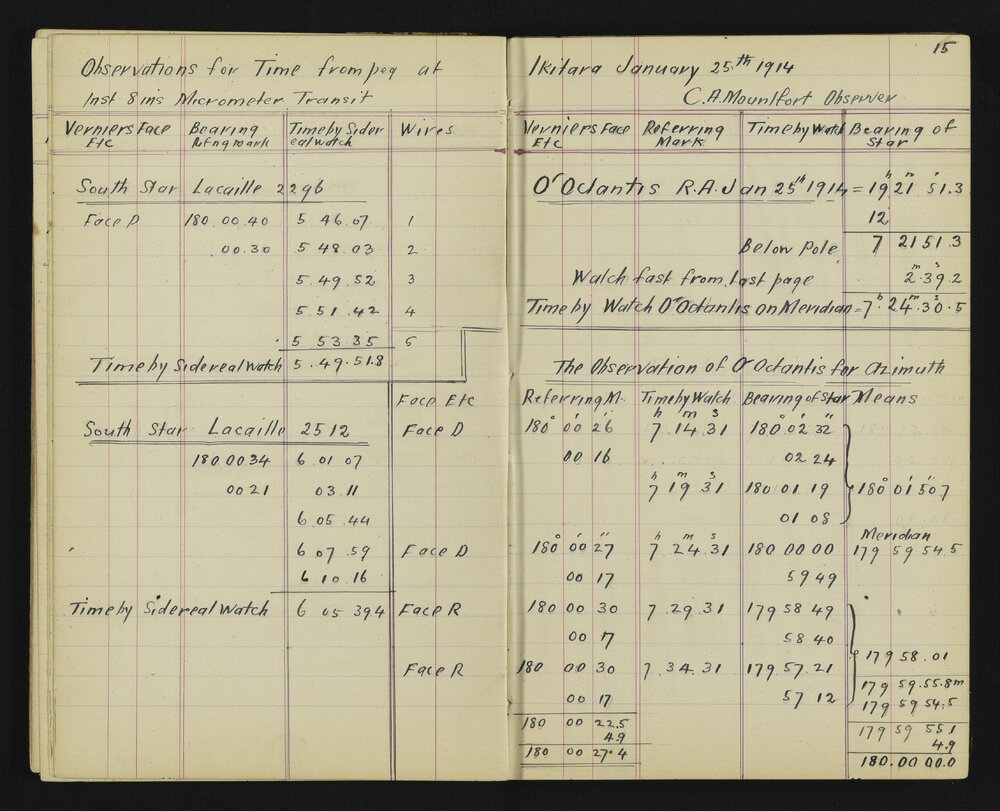 Observations for Time from peg at
Inst 8 ins Micrometer Transit
Verniers Face Etc | Bearing Ref'ng mark | Time by Sidereal watch | Wires
South Star Lacaille 2296
Face D 180.00.40 5.46.07 1
00.30 5 48.03 2
5.49.52 3
5.51.42 4
5 53 35 5
Time by Sidereal Watch 5.49.51.8
Face Etc
South Star Lacaille 2512 Face D
180.00 34 6.01 07
00 21 03.11
6.05.44
6 07.59 Face D
6.10.16
Time by Sidereal Watch 6 05 39.4 Face R
Face R
15
Ikitara January 25th 1914
C.A. Mountfort Observer
Verniers Face Etc | Referring Mark | Time by Watch | Bearing of Star
O' Octantis R.A. Jan 25th 1914 = 19h 21m 51.3s
12
Below Pole 7 21 51.3
Watch fast from last page 2m.39s.2
Time by Watch O' Octantis on Meridian = 7h.24m.30s.5
The Observation of O' Octantis for Azimuth
Referring M. Time by Watch Bearing of Star Means
180° 00' 26" 7h 14m 31s 180° 02' 32"
00 16 02 24
7h 19m 31s 180 01 19 180° 01' 50".7
01 08
Meridian
180° 00' 27" 7h 24m 31s 180 00 00 179 59 54.5
00 17 59 49
180 00 30 7.29.31 179 58 49
00 17 58 40
180 00 30 7.34.31 179 57.21 179 58.01
00 17 57 12 179 59.55.8m
179 59 54.5
180 00 22.5 179 59 55 1
4.9 4.9
180 00 27.4 180.00 00.0